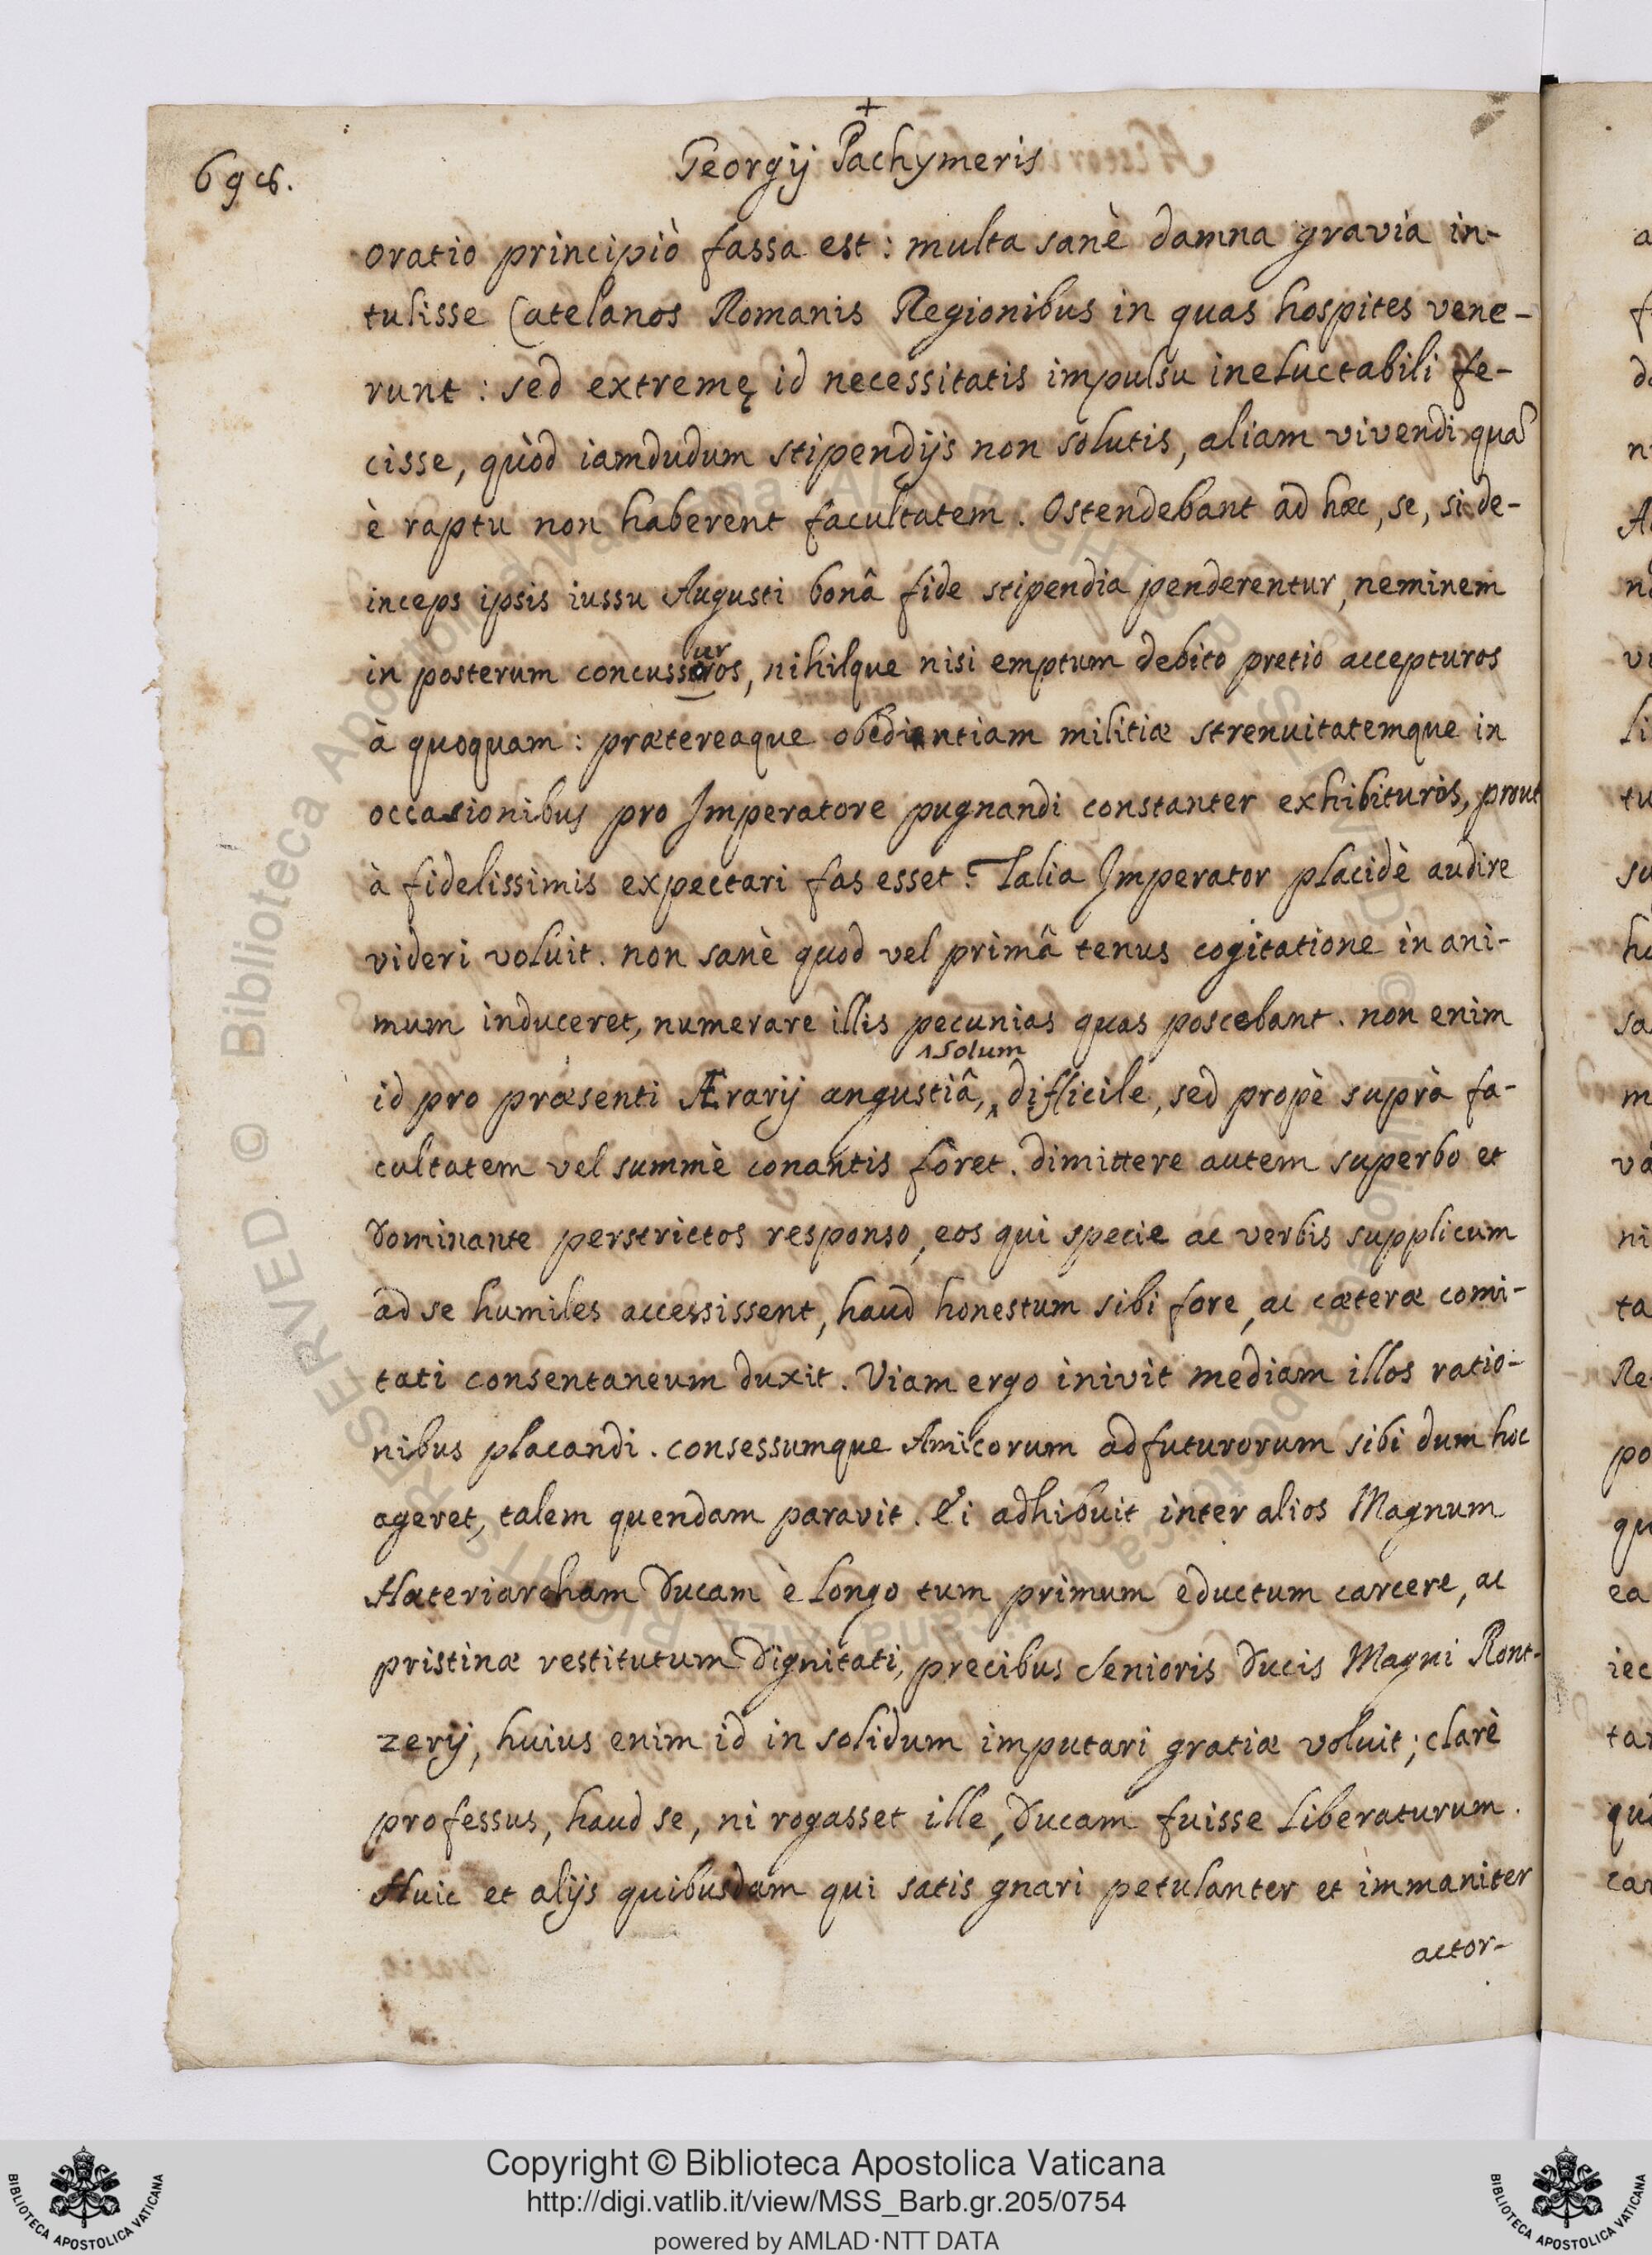 +
698.
Georgij Pachymeris
oratio principiò fassa est: multa sanè damna gravia in-
tulisse Catelanos Romanis Regionibus in quas hospites vene-
runt: sed extremę id necessitatis impulsu ineluctabili fe-
cisse, quòd iamdudum stipendijs non solutis, aliam vivendi quā
è raptu non haberent facultatem. Ostendebant ad hæc, se, si de-
inceps ipsis iussu Augusti bonâ fide stipendia penderentur, neminem
ur
in posterum concussoros, nihilque nisi emptum debito pretio accepturos
à quoquam: prætereaque obedientiam militiæ strenuitatemque in
occasionibus pro Imperatore pugnandi constanter exhibituros, prout
à fidelissimis expectari fas esset. Talia Imperator placidè audire
videri voluit. non sanè quod vel primâ tenus cogitatione in ani-
mum induceret, numerare illis pecunias quas poscebant. non enim
solum
id pro præsenti Ærarij angustiâ, difficile, sed propè suprà fa-
cultatem vel summè conantis fôret. dimittere autem superbo et
Dominante perstrictos responso, eos qui specie ac verbis supplicum
ad se humiles accessissent, haud honestum sibi fore, ac cæteræ comi-
tati consentaneum duxit. Viam ergo inivit mediam illos ratio-
nibus placandi. consessumque Amicorum adfuturorum sibi dum hoc
ageret, talem quendam paravit. Ei adhibuit inter alios Magnum
Hæteriarcham Ducam è longo tum primum eductum carcere, ac
pristinæ restitutum Dignitati, precibus Senioris Ducis Magni Ront-
zerij, huius enim id in solidum imputari gratiæ voluit; clarè
professus, haud se, ni rogasset ille, Ducam fuisse liberaturum.
Huic et alijs quibusdam qui satis gnari petulanter et immaniter
actor-
Copyright © Biblioteca Apostolica Vaticana
http://digi.vatlib.it/view/MSS_Barb.gr.205/0754
powered by AMLAD·NTT DATA
BIBLIOTECA APOSTOLICA VATICANA
BIBLIOTECA APOSTOLICA VATICANA